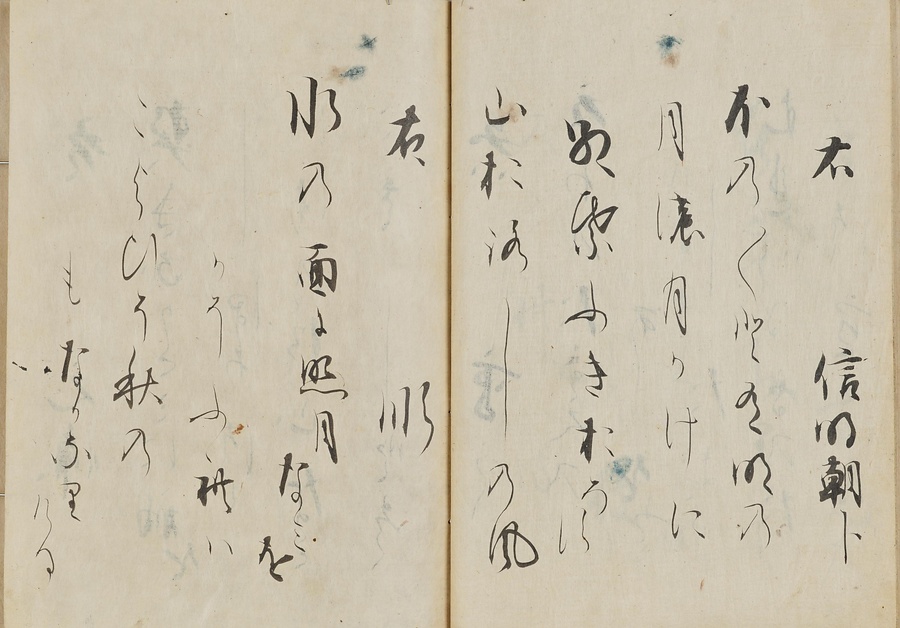 右 信明朝臣
ほのく登有明の
月濃月かけに
紅葉ふきおろす
山おろしの風
右 順
水の面に照月なみを
かそふれハ
こよひそ秋の
もなかなりける